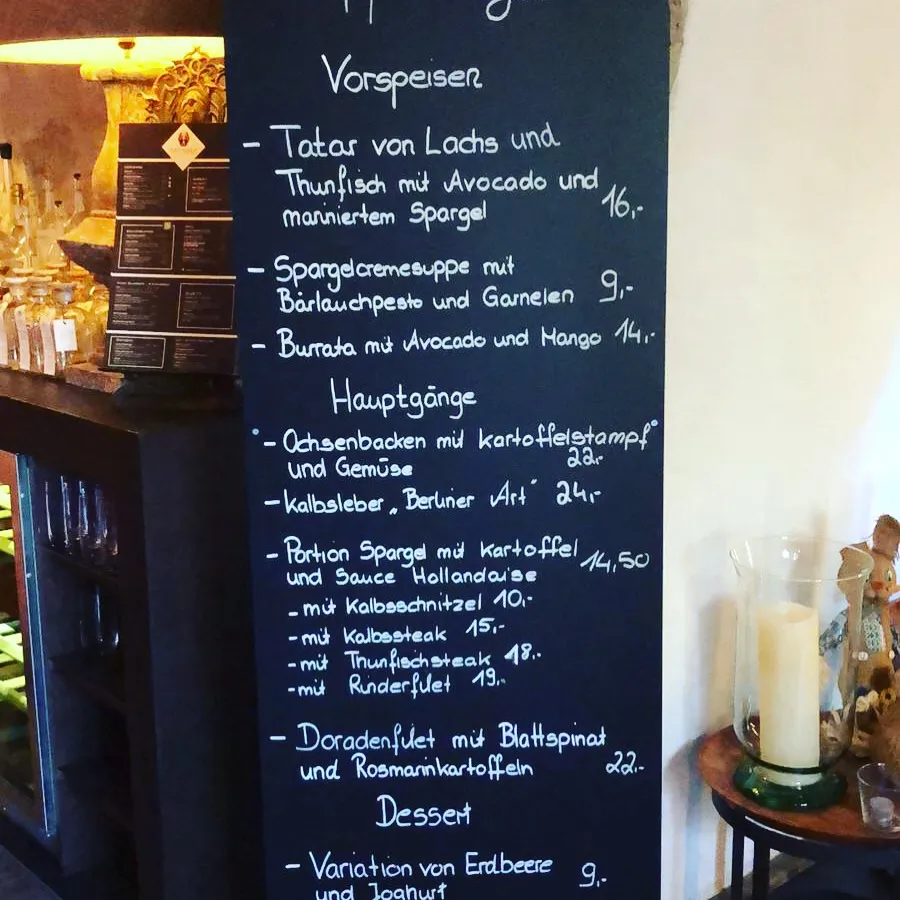 Vorspeisen
- Tatar von Lachs und
Thunfisch mit Avocado und
mariniertem Spargel 16,-
- Spargelcremesuppe mit
Bärlauchpesto und Garnelen 9,-
- Burrata mit Avocado und Mango 14,-
Hauptgänge
- Ochsenbacken mit Kartoffelstampf
und Gemüse 22,-
- Kalbsleber „Berliner Art" 24,-
- Portion Spargel mit Kartoffel
und Sauce Hollandaise 14,50
- mit Kalbsschnitzel 10,-
- mit Kalbssteak 15,-
- mit Thunfischsteak 18,-
- mit Rinderfilet 19,-
- Doradenfilet mit Blattspinat
und Rosmarinkartoffeln 22,-
Dessert
- Variation von Erdbeere
und Joghurt 9,-